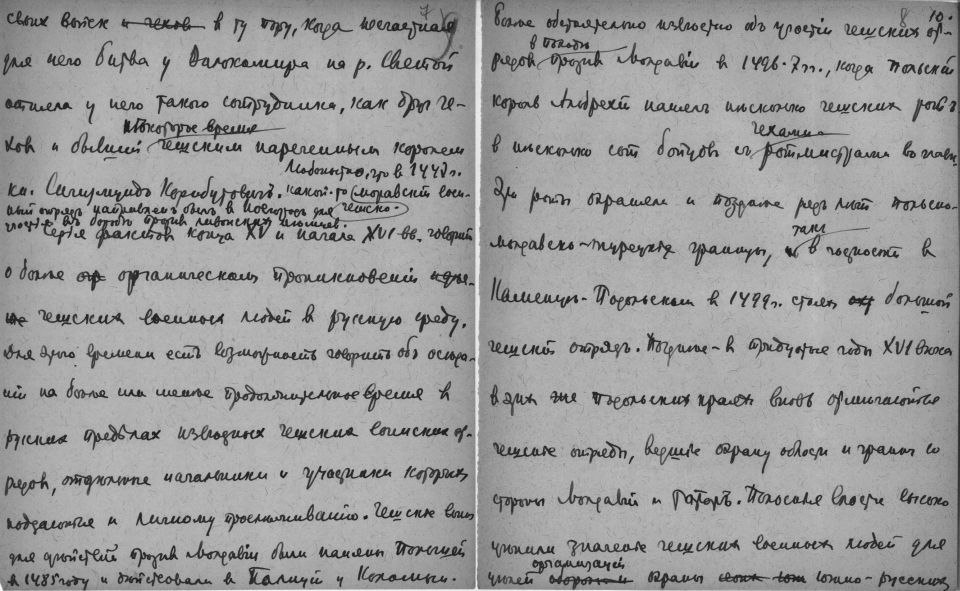 7
своих войск и чехов в ту пору, когда несчастная
для него битва у Вилькомира на р. Святой
отняла у него такого сотрудника, как друг че-
некоторое время
хов и бывший чешским нареченным королем
Любопытно, что в 1448 г.
кн. Сигизмунд Корибутович. какой-то моравский воен-
ный отряд направлен был в для чешско-
в борьбе против ливонских
Серия фактов конца XV и начала XVI вв. говорит
о более органическом проникновении
чешских военных людей в русскую среду.
Для этого времени есть возможность говорить об оседа-
нии на более или менее продолжительное время в
русских пределах наездных чешских воинских от-
рядов, отдельные начальники и участники которых
поддаются и личному прослеживанию. Чешские воины
для действий против Молдавии были наняты Польшей
в 1485 году и действовали в Галиции у Коломыи.
8 10.
Более обстоятельно известно об участии чешских от-
в походе
рядов против Молдавии в 1496-7 гг., когда польский
король Альбрехт нанял несколько чешских рот в
чехами
в несколько сот бойцов с ротмистрами во главе
Эти роты охраняли и позднее ряд лет польско-
таки
молдавско-турецкие границы, в частности в
Каменце-Подольском в 1499 г. стоял большой
чешский отряд. Позднее - в тридцатые годы XVI века
в этих же подольских краях вновь
чешские отряды, ведшие охрану области и границ со
стороны Молдавии и Татар. Польские власти высоко
ценили значение чешских военных людей для
организации
целей обороны и охраны южно-русских